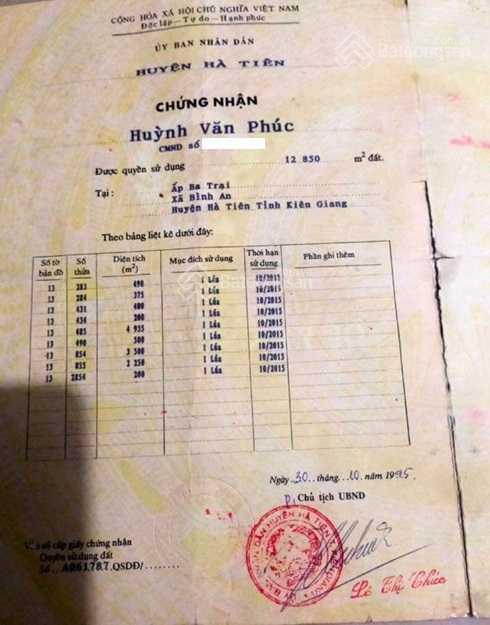 CỘNG HÒA XÃ HỘI CHỦ NGHĨA VIỆT NAM
Độc lập - Tự do - Hạnh phúc
ỦY BAN NHÂN DÂN
HUYỆN HÀ TIÊN
CHỨNG NHẬN
Huỳnh Văn Phúc
CMND số
Được quyền sử dụng 12 850 m² đất.
Tại : Ấp Ba Trại
Xã Bình An
Huyện Hà Tiên Tỉnh Kiên Giang
Theo bảng liệt kê dưới đây:
Số tờ bản đồ Số thửa Diện tích (m²) Mục đích sử dụng Thời hạn sử dụng Phần ghi thêm
13 283 490 1 Lúa 10/2015
13 284 375 1 Lúa 10/2015
13 431 400 1 Lúa 10/2015
13 434 200 1 Lúa 10/2015
13 485 4 935 1 Lúa 10/2015
13 490 500 1 Lúa 10/2015
13 854 3 500 1 Lúa 10/2015
13 855 2 250 1 Lúa 10/2015
13 2854 200 1 Lúa 10/2015
Ngày 30 tháng 10 năm 1995
Chủ tịch UBND
số cấp giấy chứng nhận
Quyền sử dụng đất
Số A061787.QSDĐ/
Batdongsan